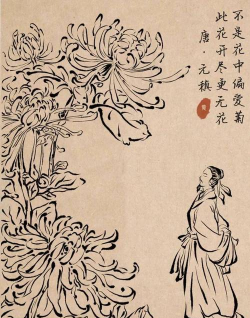 不是花中偏爱菊
此花开尽更无花
唐·元稹